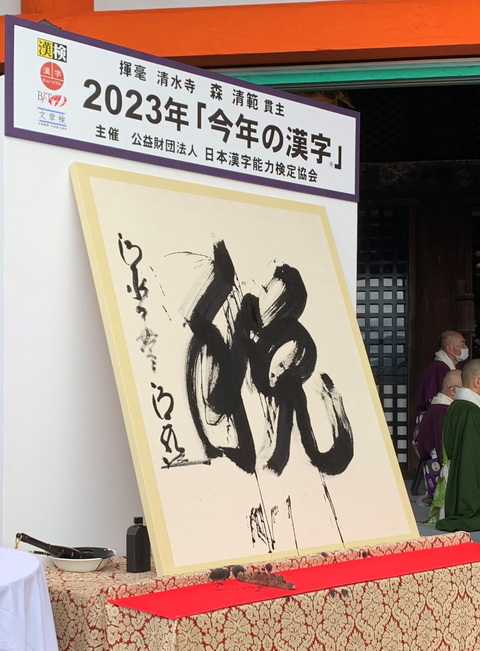 漢検
漢字
B/T
文章検
揮毫 清水寺 森 清範 貫主
2023年「今年の漢字」
主催 公益財団法人 日本漢字能力検定協会
税